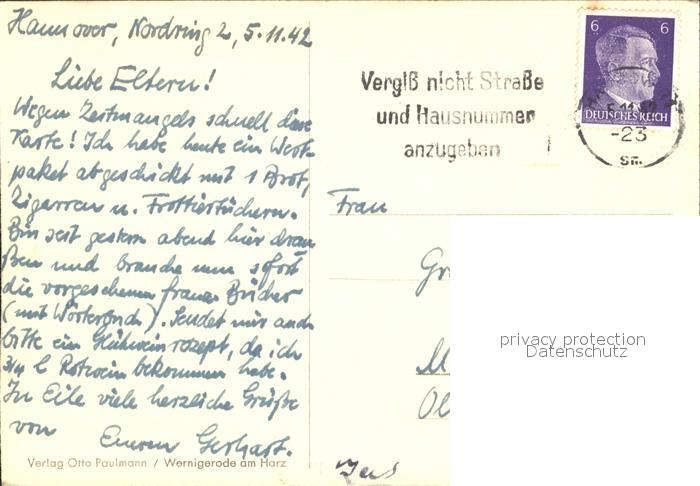 Hannover, Nordring 2, 5.11.42
Liebe Eltern!
Wegen Zeitmangels schnell diese
Karte! Ich habe heute ein Wert-
paket abgeschickt mit 1 Brot,
Zigarren u. Frottiertüchern.
Bin seit gestern abend hier drau
ßen und brauche nun sofort
die vorgesehenen franz. Bücher
(mit Wörterbuch). Sendet mir auch
bitte ein Glühweinrezept, da ich
3/4 l Rotwein bekommen habe.
In Eile viele herzliche Grüße
von Eurem Gerhart.
Verlag Otto Paulmann / Wernigerode am Harz
Vergiß nicht Straße
und Hausnummer
anzugeben
6 6
DEUTSCHES REICH
5.11.42
-23
Frau
Gr
M
Ol
privacy protection
Datenschutz